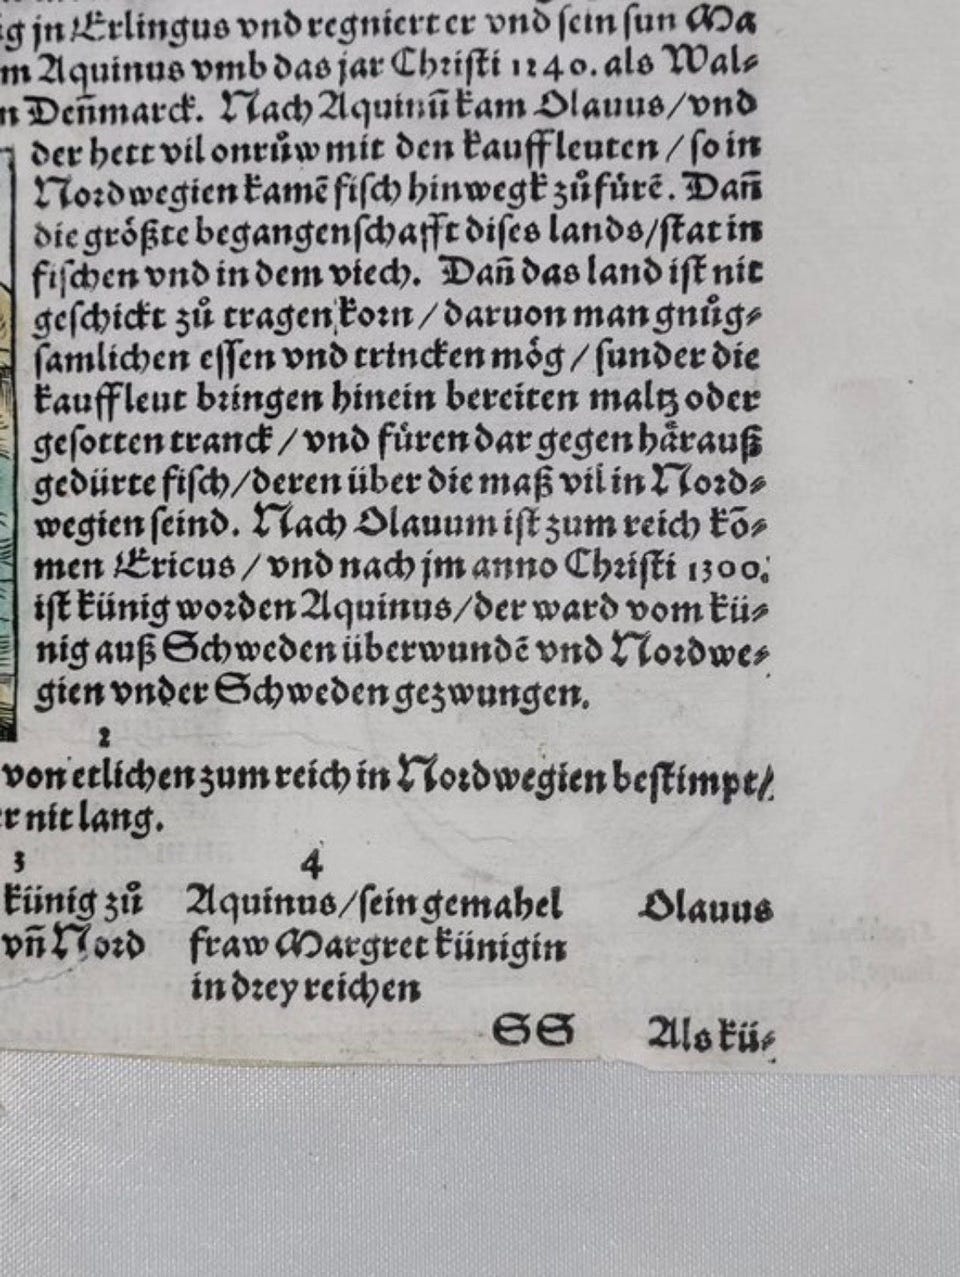 ig jn Erlingus vnd regniert er vnd sein sun Ma
m Aquinus vmb das jar Christi 1240. als Wal⸗
n Deñmarck. Nach Aquinũ kam Olauus/vnd
der hett vil onrůw mit den kauffleuten/so in
Nordwegien kamẽ fisch hinwegk zů fürẽ. Dañ
die größte begangenschafft dises lands/stat in
fischen vnd in dem viech. Dañ das land ist nit
geschickt zů tragen korn/daruon man gnůg⸗
samlichen essen vnd trincken mög/sunder die
kauffleut bringen hinein bereiten maltz oder
gesotten tranck/vnd füren dar gegen härauß
gedürte fisch/deren über die maß vil in Nord⸗
wegien seind. Nach Olauum ist zum reich kõ⸗
men Ericus/vnd nach jm anno Christi 1300.
ist künig worden Aquinus/der ward vom kü⸗
nig auß Schweden überwundẽ vnd Nordwe⸗
gien vnder Schweden gezwungen.
2
von etlichen zum reich in Nordwegien bestimpt/
er nit lang.
3 4
künig zů Aquinus/sein gemahel Olauus
vñ Nord fraw Margret künigin
in drey reichen
SS Als kü⸗